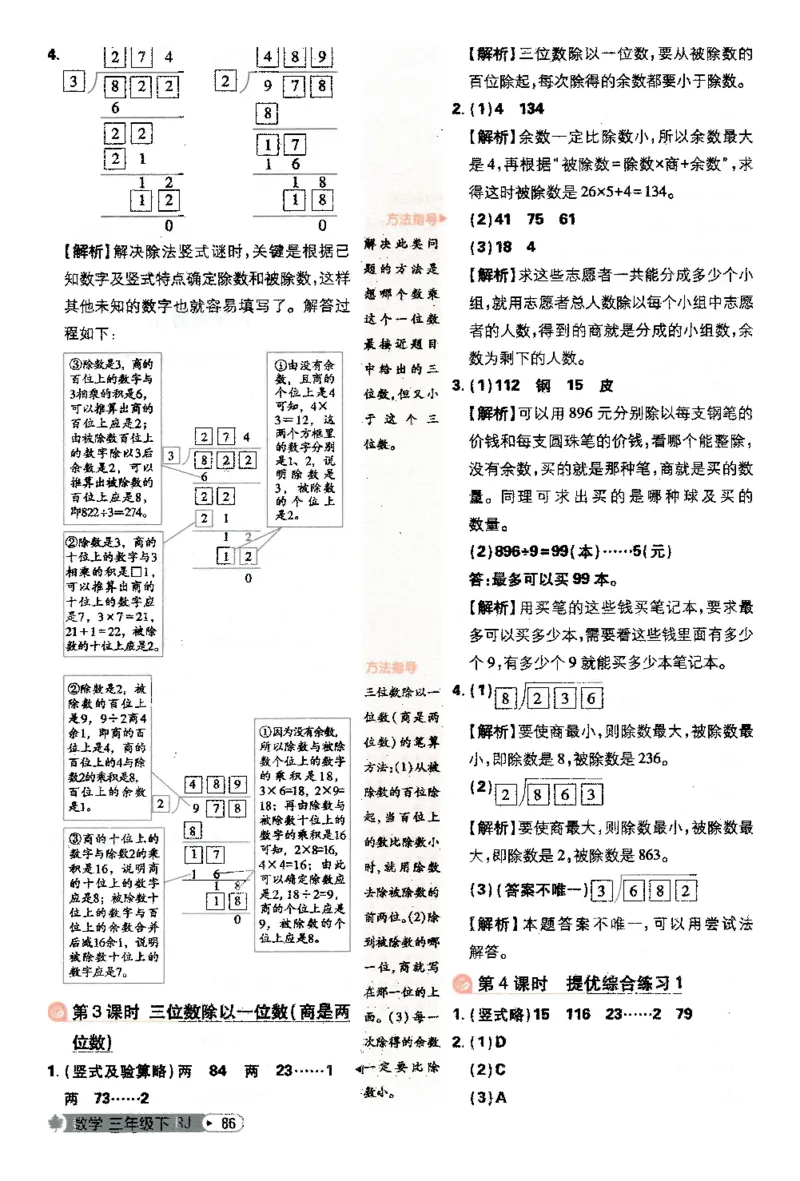 4.
2 7 4
3 8 2 2
6
2 2
2 1
1 2
1 2
0
4 8 9
2 9 7 8
8
1 7
1 6
1 8
1 8
0
【解析】解决除法竖式谜时,关键是根据已
知数字及竖式特点确定除数和被除数,这样
其他未知的数字也就容易填写了。解答过
程如下:
③除数是3,商的
百位上的数字与
3相乘的积是6,
可以推算出商的
百位上应是2;
由被除数百位上
的数字除以3后
余数是2,可以
推算出被除数的
百位上应是8,
即822÷3=274。
②除数是3,商的
十位上的数字与3
相乘的积是□1,
可以推算出商的
十位上的数字应
是7,3×7=21,
21+1=22,被除
数的十位上应是2。
2 7 4
3 8 2 2
6
2 2
2 1
1 2
1 2
0
①由没有余
数,且商的
个位上是4
可知,4×
3=12,这
两个方框里
的数字分别
是1、2,说
明除数是
3,被除数
的个位上
是2。
②除数是2,被
除数的百位上
是9,9÷2商4
余1,即商的百
位上是4,商的
百位上的4与除
数2的乘积是8,
百位上的余数
是1。
③商的十位上的
数字与除数2的乘
积是16,说明商
的十位上的数字
应是8;被除数十
位上的数字与百
位上的余数合并
后减16余1,说明
被除数十位上的
数字应是7。
4 8 9
2 9 7 8
8
1 7
1 6
1 8
1 8
0
①因为没有余数,
所以除数与被除
数个位上的数字
的乘积是18,
3×6=18,2×9=
18;再由除数与
被除数十位上的
数字的乘积是16
可知,2×8=16,
4×4=16;由此
可以确定除数应
是2,18÷2=9,
商的个位上应是
9,被除数的个
位上应是8。
第3课时 三位数除以一位数(商是两
位数)
1.(竖式及验算略)两 84 两 23……1
两 73……2
方法指导
解决此类问
题的方法是
想哪个数乘
这个一位数
最接近题目
中给出的三
位数,但又小
于这个三
位数。
方法指导
三位数除以一
位数(商是两
位数)的笔算
方法:(1)从被
除数的百位除
起,当百位上
的数比除数小
时,就用除数
去除被除数的
前两位。(2)除
到被除数的哪
一位,商就写
在那一位的上
面。(3)每一
次除得的余数
一定要比除
数小。
【解析】三位数除以一位数,要从被除数的
百位除起,每次除得的余数都要小于除数。
2.(1)4 134
【解析】余数一定比除数小,所以余数最大
是4,再根据“被除数=除数×商+余数”,求
得这时被除数是26×5+4=134。
(2)41 75 61
(3)18 4
【解析】求这些志愿者一共能分成多少个小
组,就用志愿者总人数除以每个小组中志愿
者的人数,得到的商就是分成的小组数,余
数为剩下的人数。
3.(1)112 钢 15 皮
【解析】可以用896元分别除以每支钢笔的
价钱和每支圆珠笔的价钱,看哪个能整除,
没有余数,买的就是那种笔,商就是买的数
量。同理可求出买的是哪种球及买的
数量。
(2)896÷9=99(本)……5(元)
答:最多可以买99本。
【解析】用买笔的这些钱买笔记本,要求最
多可以买多少本,需要看这些钱里面有多少
个9,有多少个9就能买多少本笔记本。
4.(1)8 2 3 6
【解析】要使商最小,则除数最大,被除数最
小,即除数是8,被除数是236。
(2)2 8 6 3
【解析】要使商最大,则除数最小,被除数最
大,即除数是2,被除数是863。
(3)(答案不唯一)3 6 8 2
【解析】本题答案不唯一,可以用尝试法
解答。
第4课时 提优综合练习1
1.(竖式略)15 116 23……2 79
2.(1)D
(2)C
(3)A
数学 三年级下 RJ 86